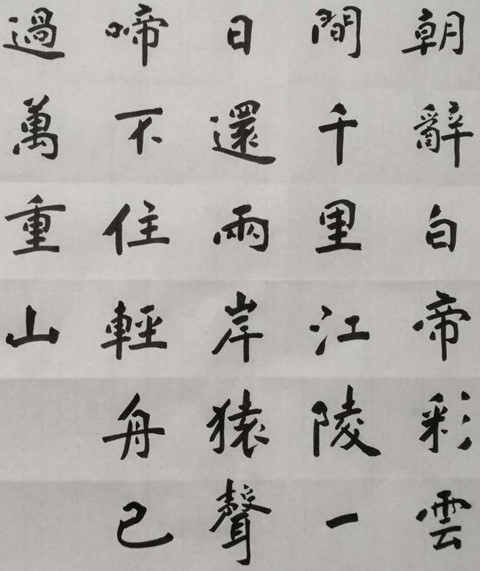 朝辭白帝彩雲
間千里江陵一
日還兩岸猿聲
啼不住輕舟已
過萬重山